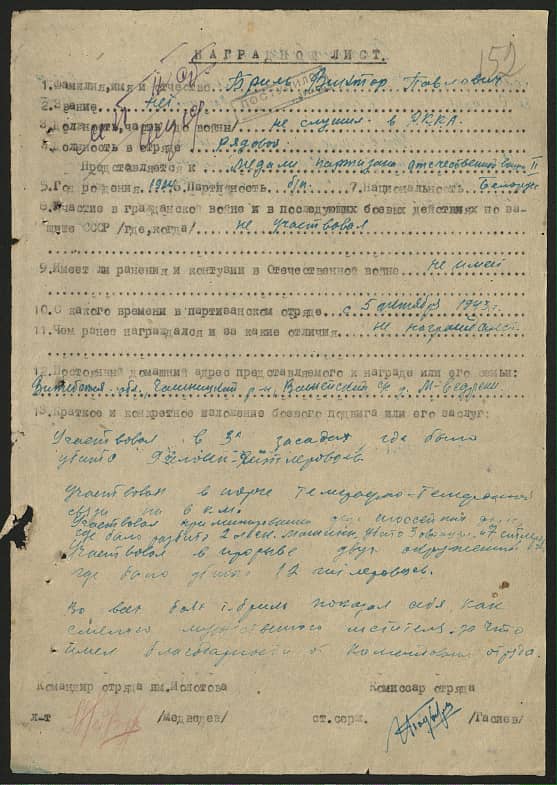 НАГРАДНОЙ ЛИСТ.
152
1. Фамилия, имя и отчество Бриль Виктор Павлович
2. Звание нет
3. Должность, часть до войны не служил в РККА
4. Должность в отряде рядовой
Представляется к медали партизана отечественной войны II
5. Год рождения 1924 Партийность б/п 7. Национальность белорус
8. Участие в гражданской войне и в последующих боевых действиях по за-
щите СССР /где, когда/ не участвовал
9. Имеет ли ранения и контузии в Отечественной войне не имел
10. С какого времени в партизанском отряде с 5 1943 г.
11. Чем ранее награждался и за какие отличия. не награждался
12. Постоянный домашний адрес представляемого к награде или его семьи:
Витебская обл., Чашникский р-н, с/с д.
13. Краткое и конкретное изложение боевого подвига или его заслуг:
Участвовал в 3х засадах где было
убито гитлеровцев
Участвовал в порче телеграфно-телефонной
связи на 6 км.
Участвовал
где было разбито 2 машины, убито
Участвовал в прорыве двух окружений
где было убито 12 гитлеровцев.
Во всех боях т. Бриль показал себя как
смелого мужественного мстителя, за что
имел благодарности от командования отряда.
Командир отряда им. Молотова
Комиссар отряда
л-т /Медведев/
ст. серж. /Гасиев/